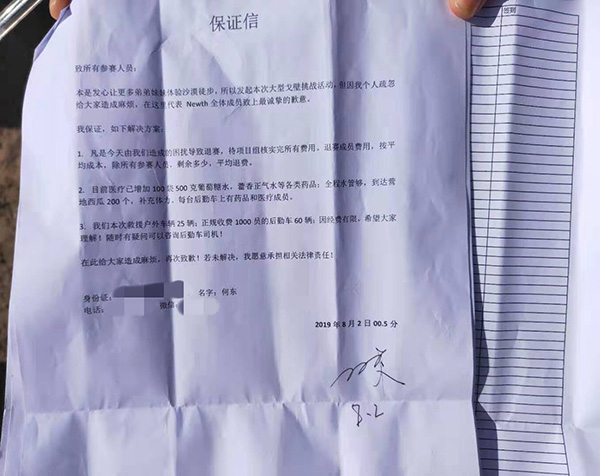 签到
保证信
致所有参赛人员:
本是发心让更多弟弟妹妹体验沙漠徒步,所以发起本次大型戈壁挑战活动,但因我个人疏忽
给大家造成麻烦,在这里代表 Newth 全体成员致上最诚挚的歉意。
我保证,如下解决方案:
1. 凡是今天由我们造成的困扰导致退赛,待项目组核实完所有费用,退赛成员费用,按平
均成本,除所有参赛人员,剩余多少,平均退费。
2. 目前医疗已增加 100 袋 500 克葡萄糖水,藿香正气水等各类药品;全程水管够,到达营
地西瓜 200 个,补充体力,每台后勤车上有药品和医疗成员。
3. 我们本次救援户外车辆 25 辆;正规收费 1000 员的后勤车 60 辆;因经费有限,希望大家
理解!随时有疑问可以咨询后勤车司机!
在此给大家造成麻烦,再次致歉!若未解决,我愿意承担相关法律责任!
身份证: 名字:何东
电话: 微信
2019 年 8 月 2 日 00.5 分
8.2